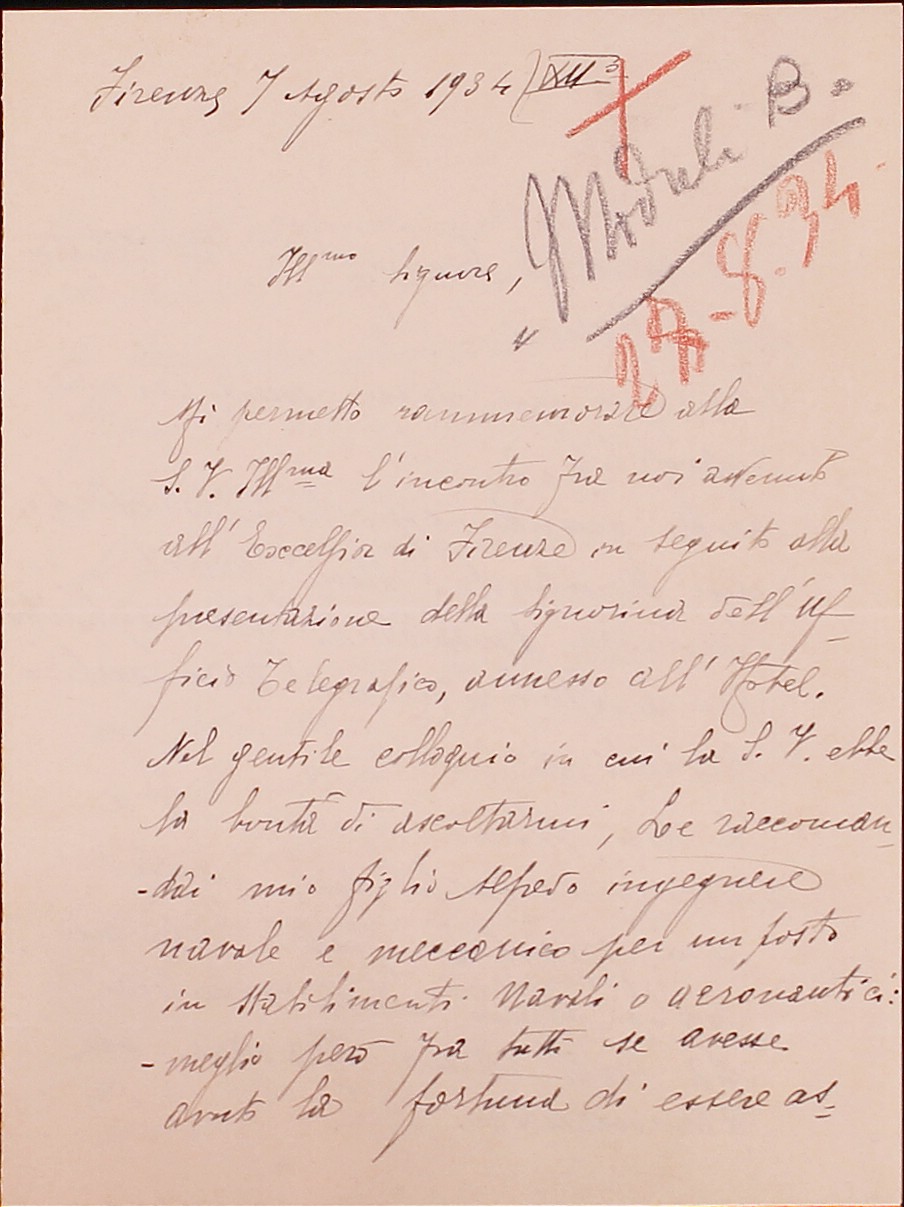 Firenze 7 Agosto 1934 (XII
Moduli B.
27-8.34
Ill^mo Signore,
Mi permetto rammemorare alla
S. V. Ill^ma l'incontro fra noi avvenuto
all'Excelsior di Firenze in seguito alla
presentazione della Signorina dell'Uf-
ficio Telegrafico, annesso all'Hotel.
Nel gentile colloquio in cui la S. V. ebbe
la bontà di ascoltarmi, Le raccoman-
-dai mio figlio Alfredo ingegnere
navale e meccanico per un posto
in Stabilimenti Navali o aeronautici:
- meglio però fra tutti se avesse
avuto la fortuna di essere as-